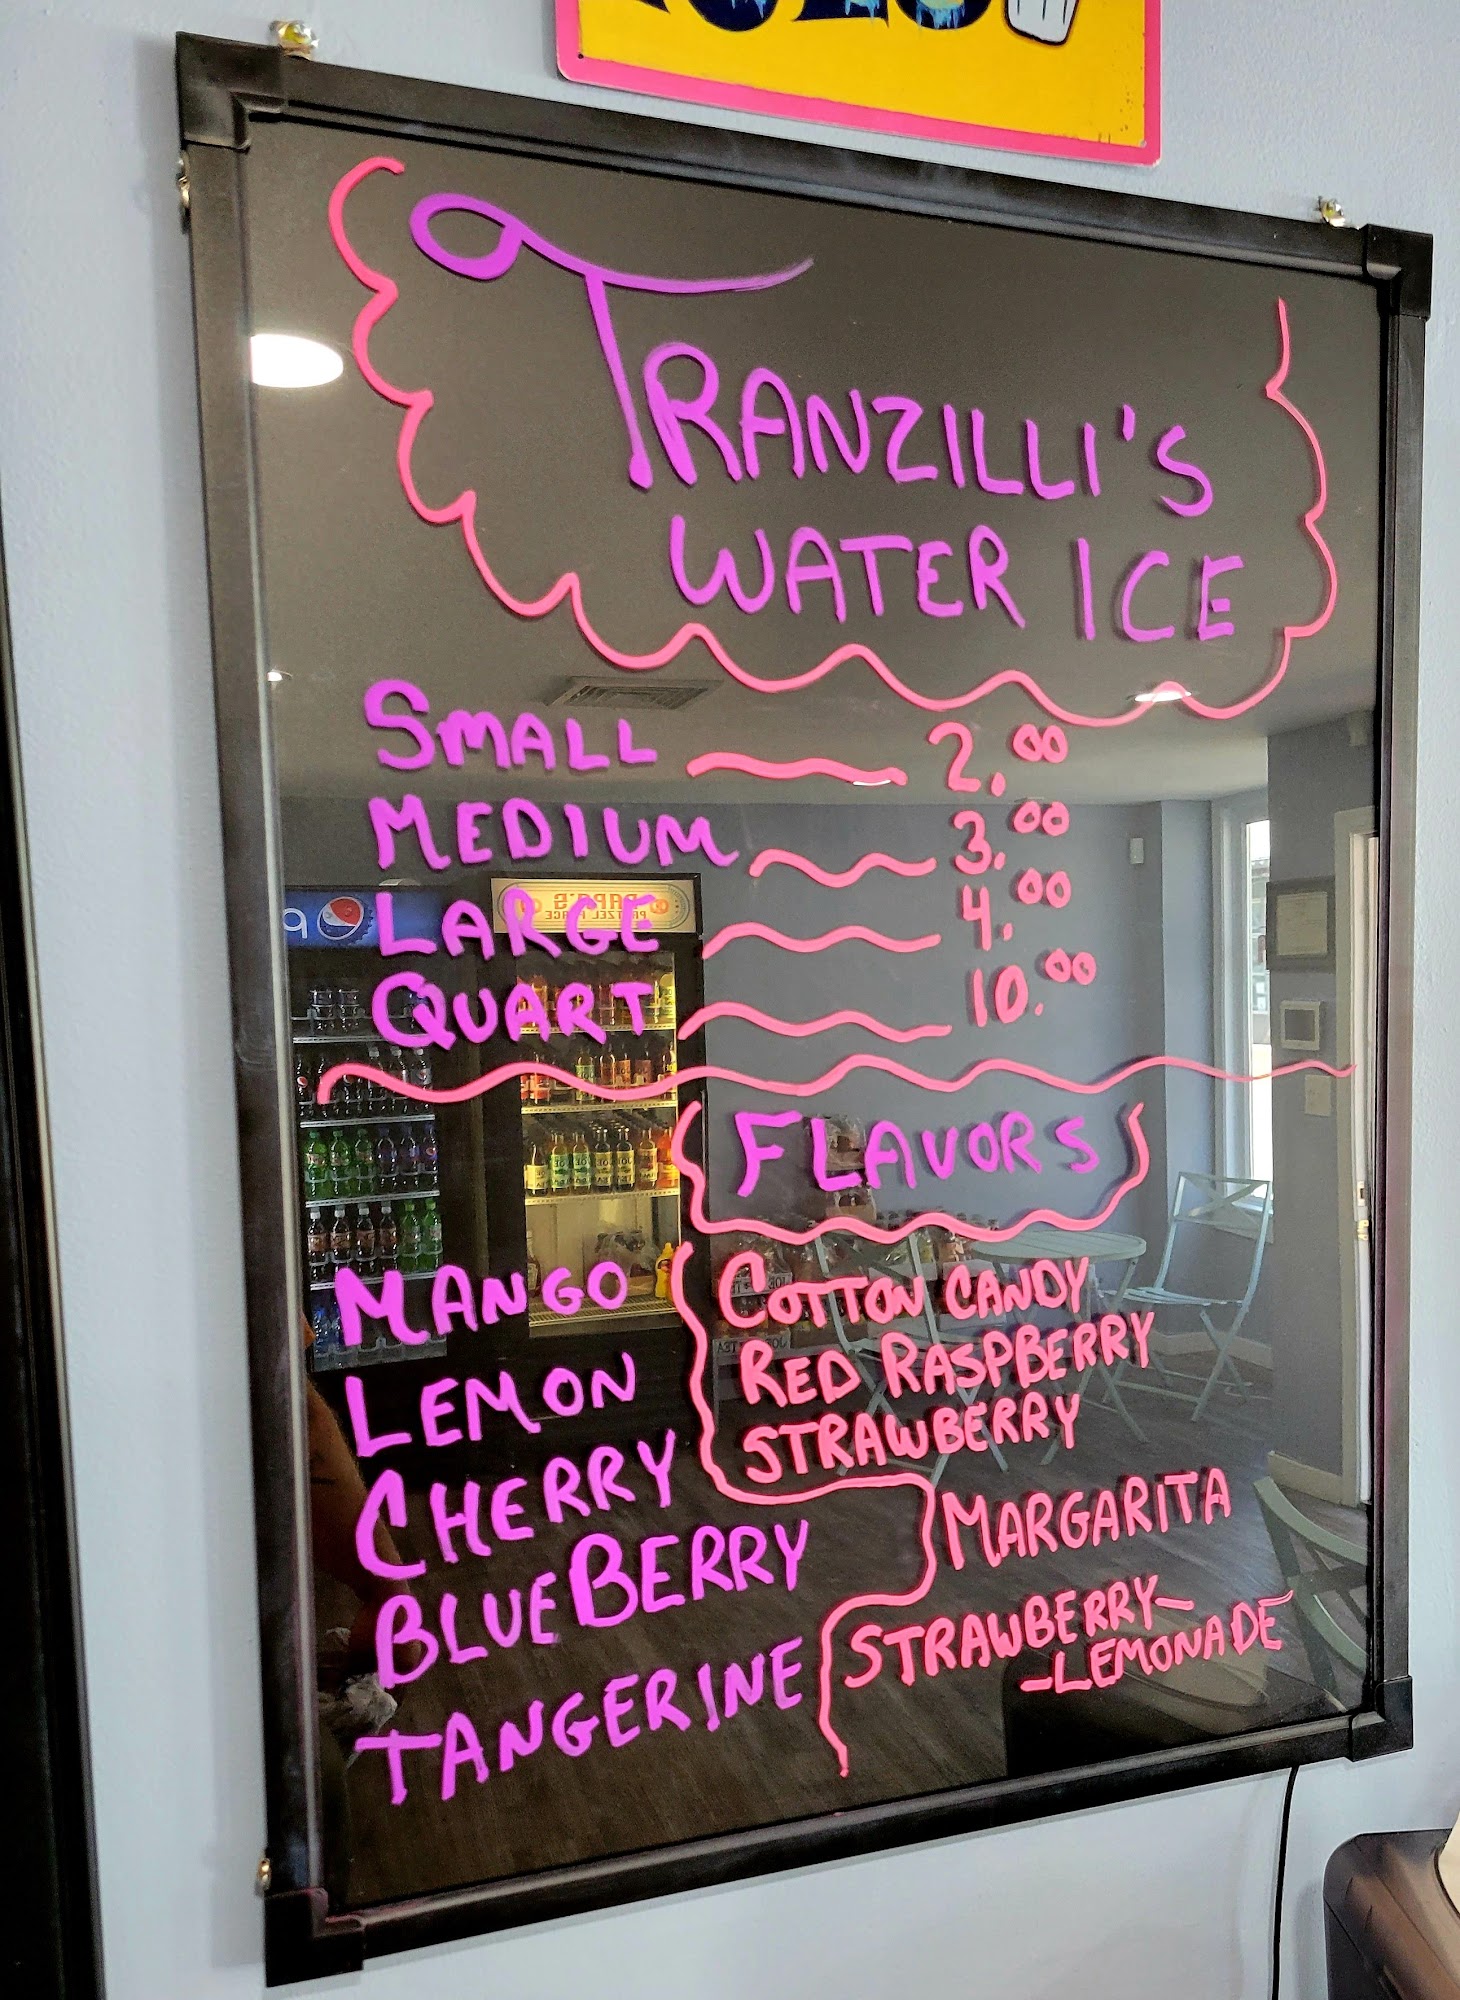 TRANZILLI'S
WATER ICE
SMALL 2.00
MEDIUM 3.00
LARGE 4.00
QUART 10.00
FLAVORS
MANGO
LEMON
CHERRY
BLUEBERRY
TANGERINE
COTTON CANDY
RED RASPBERRY
STRAWBERRY
MARGARITA
STRAWBERRY-
-LEMONADE